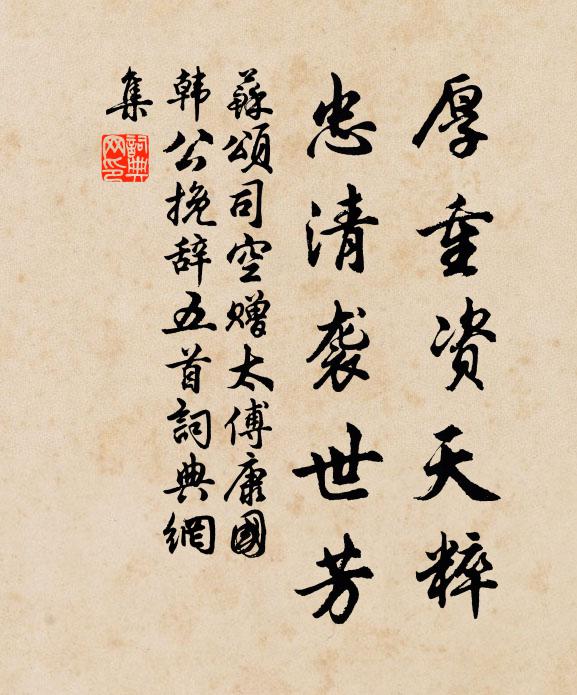 厚重资天粹
忠清袭世芳
蘇頌司空赠太傅康國
韩公挽辞五首詞典網
集
詞典
网印